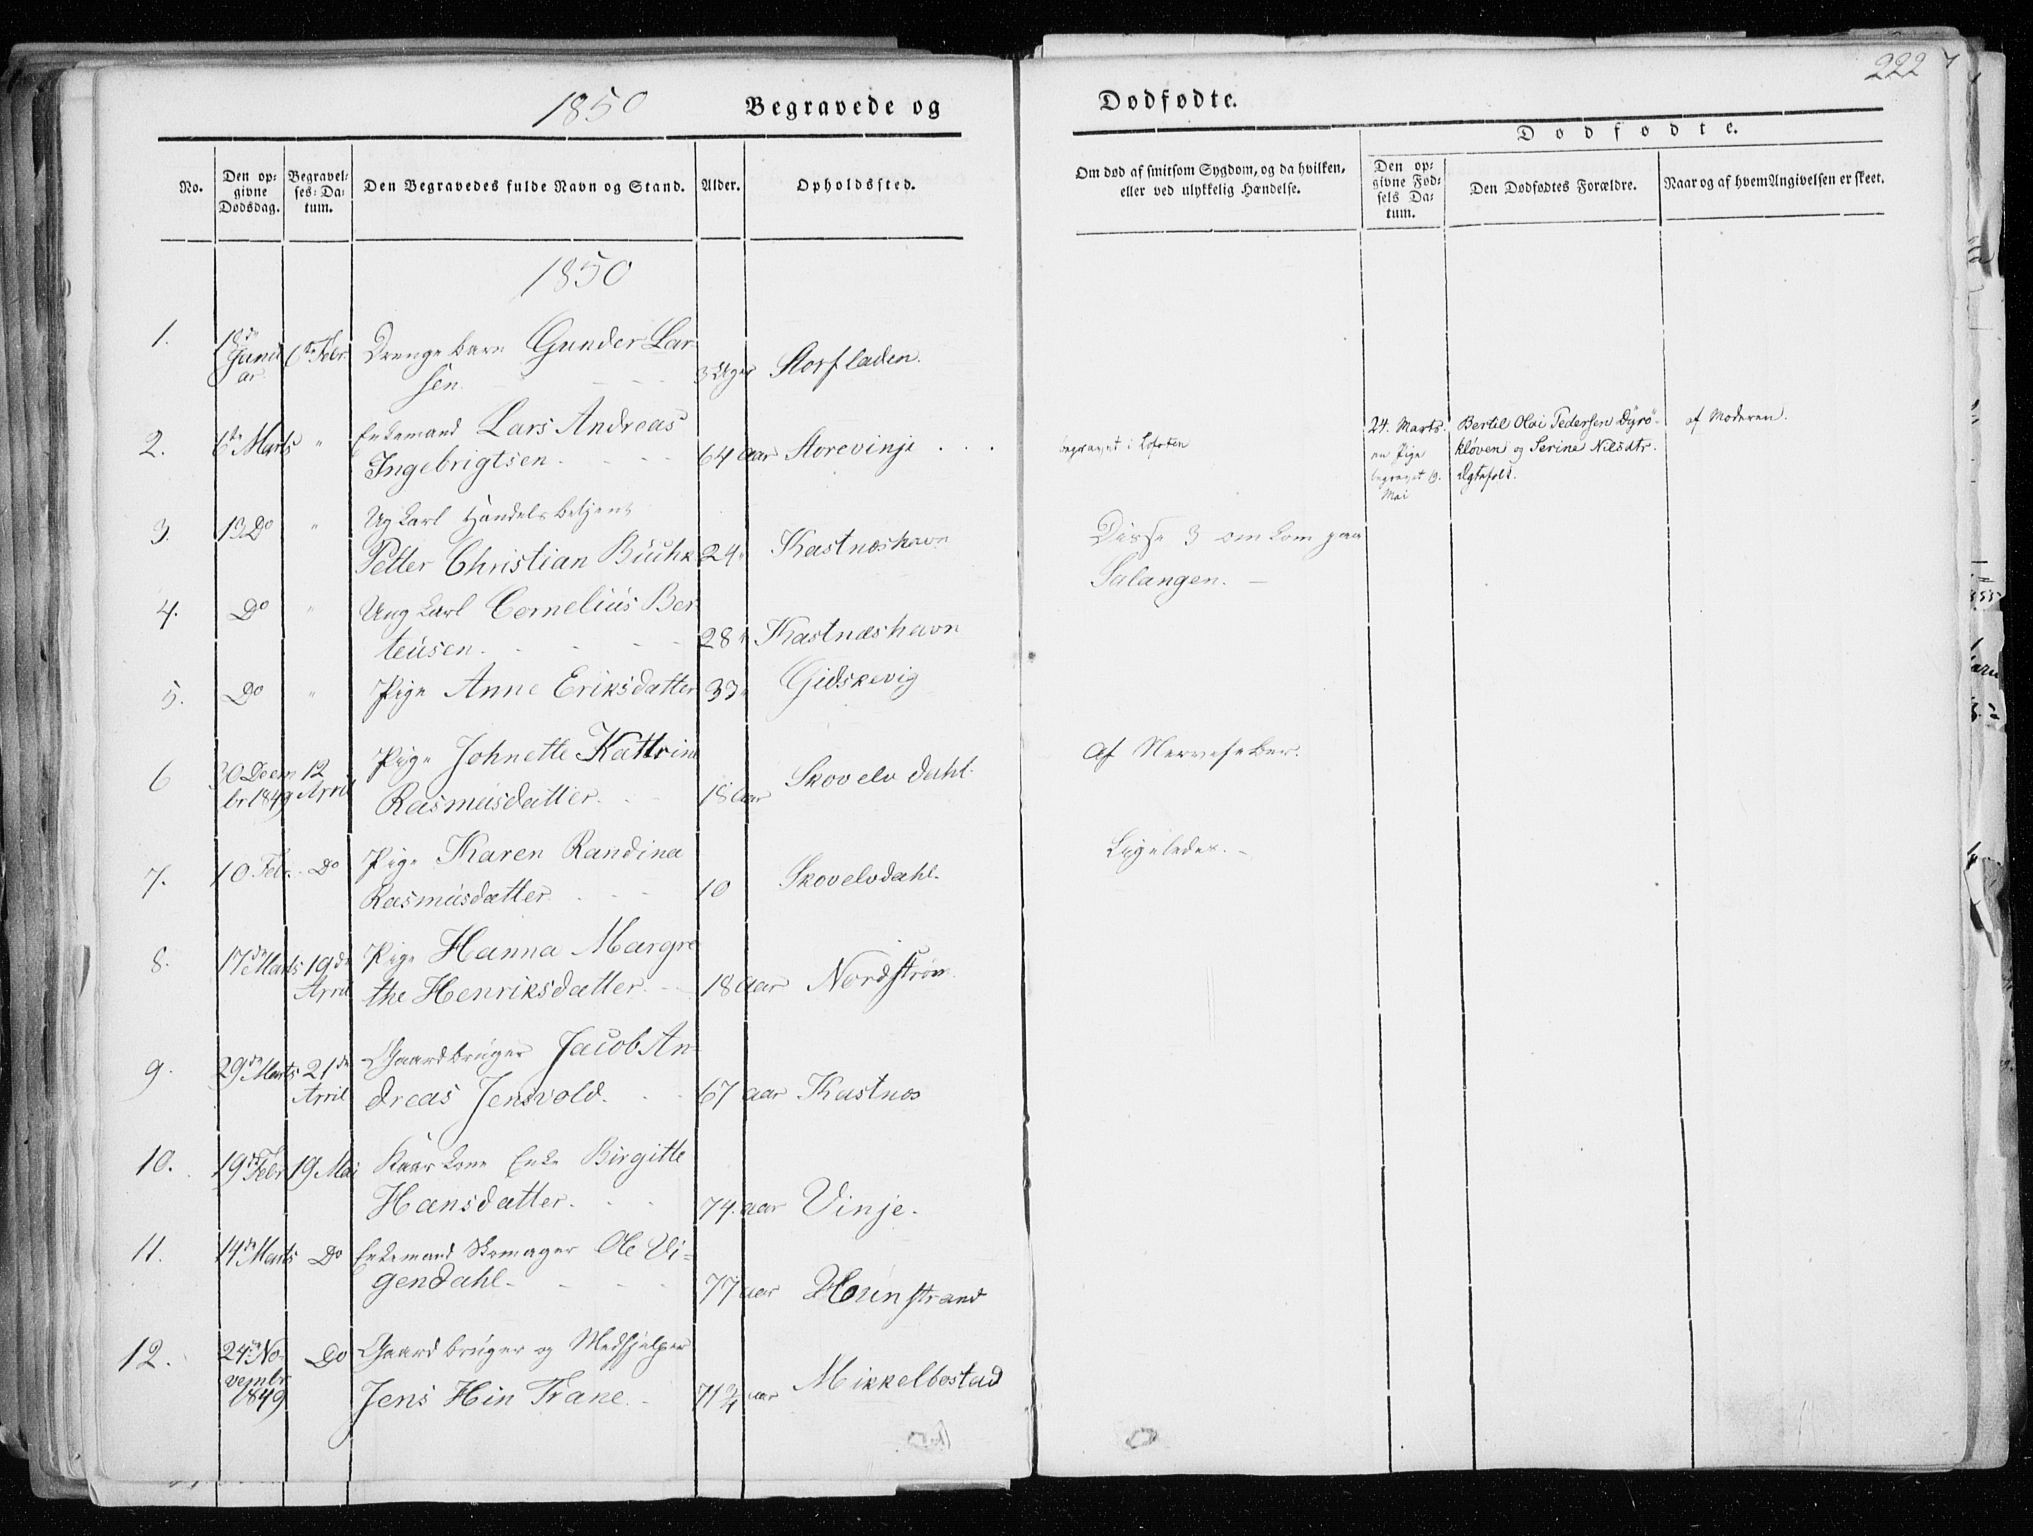 222
1850 Begravede og Dødfødte.
No. Den opgivne Dødsdag. Begravelses-Datum. Den Begravedes fulde Navn og Stand. Alder. Opholdssted.
Om død af smitsom Sygdom, og da hvilken, eller ved ulykkelig Hændelse.
Dødfødte.
Den opgivne Fødsels Datum. Den Dødfødtes Forældre. Naar og af hvem Angivelsen er skeet.
1850
1. 18de Januar. 6te Febr Drengebarn Gunder Larsen. 3 Uger Storfladen.
2. 6te Marts " Enkemand Lars Andreas
Ingebrigtsen. 64 aar Storevinje . . . begravet i Lofoten
24. Marts. en Pige begravet 19. Mai
Bertil Olai Pedersen Dyrö-
kløven og Serine Nilsdtr.
Ægtefolk.
af Moderen.
3. 13 Do " Ugkarl Handelsbetjent
Petter Christian 24 " Kastneshavn
Disse 3 omkom paa
Salangen. —
4. Do " Ungkarl Cornelius Ber-
teusen. 28 " Kastnæshavn
5. Do " Pige Anne Eriksdatter Gidskevig
6 30 Decembr 1849 12 April Pige Johnette Kattrine
Rasmusdatter. 18 aar Skovelvdahl. Af Nervefeber.
7. 10 Febr. Do Pige Karen Randina
Rasmusdatter. 10 Skovelvdahl. Ligeledes. —
8. 17de Marts 19de April Pige Hanna Margre
the Henriksdatter. 18 aar Nordstrøm.
9. 29de Marts 21de April Gaardbruger Jacob An-
dreas Jensvold. 67 aar Kastnes
10. 19de Febr 19 Mai Kaarkone Enke Birgitte
Hansdatter. 74. aar Vinje.
11. 14de Marts Do Enkemand Skomager Ole Vi-
gendahl. 77 aar Hunstrand
12. 24de Novembr 1849 Do Gaardbruger og Medhjelper
Jens Hin Trane. 71 2/4 aar Mikkelbostad